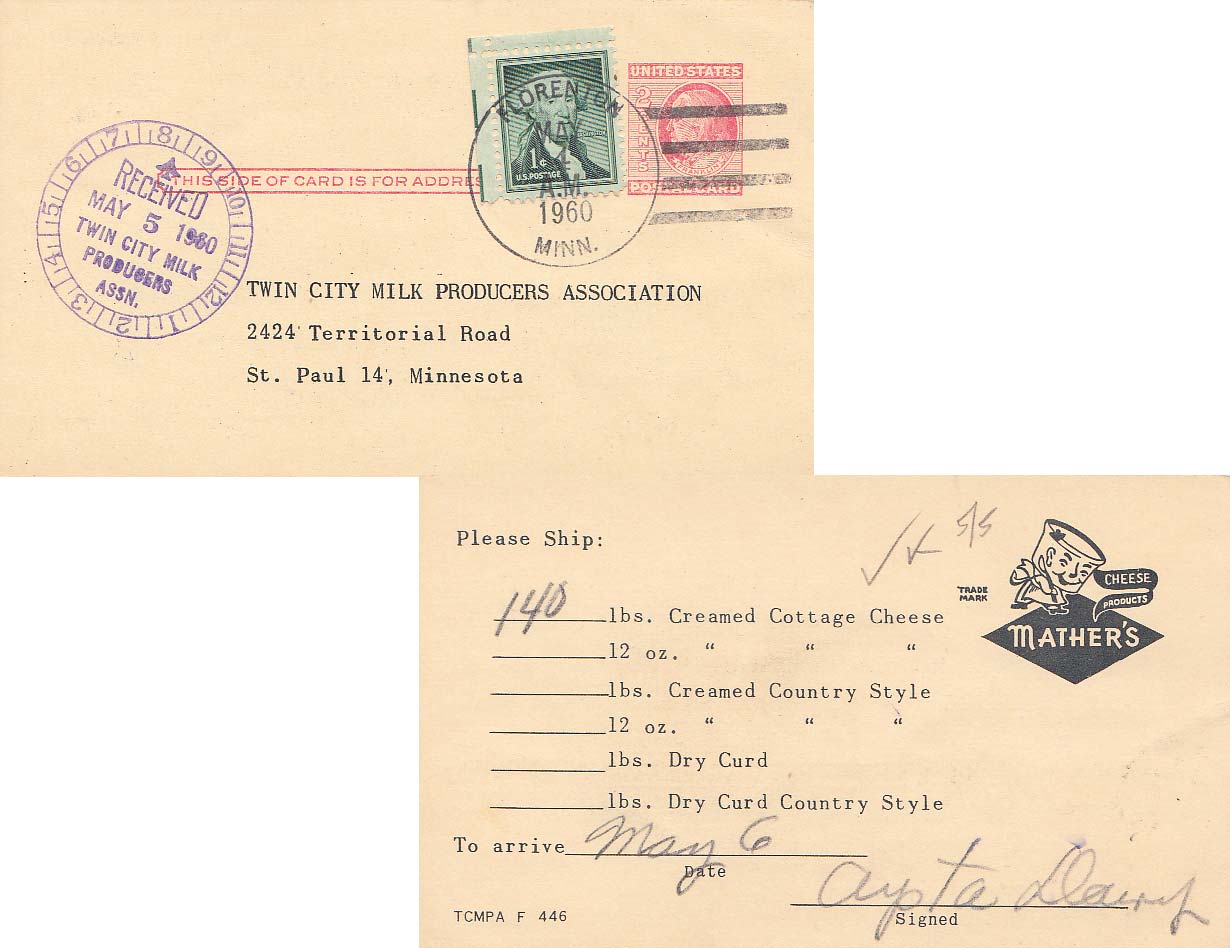 UNITED STATES
2 CENTS
FRANKLIN
POSTAL CARD
1¢
U.S. POSTAGE
FLORENTON
MAY
4
A.M.
1960
MINN.
THIS SIDE OF CARD IS FOR ADDRE
7 8 9 10 11 12 1 2 3 4 5 6
RECEIVED
MAY 5 1960
TWIN CITY MILK
PRODUCERS
ASSN.
TWIN CITY MILK PRODUCERS ASSOCIATION
2424 Territorial Road
St. Paul 14, Minnesota
Please Ship:
5/5
TRADE
MARK
CHEESE
PRODUCTS
MATHER'S
140 lbs. Creamed Cottage Cheese
12 oz. " " "
lbs. Creamed Country Style
12 oz. " " "
lbs. Dry Curd
lbs. Dry Curd Country Style
To arrive May 6
Date
Dairy
Signed
TCMPA F 446